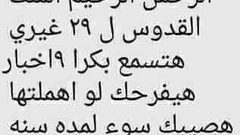 الرحمن الرحيم انت
القدوس ل ٢٩ غيري
هتسمع بكرا ٩اخبار
هيفرحك لو اهملتها
هصيبك سوء لمده سنه